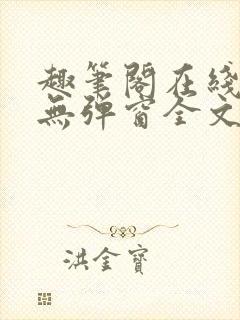 趣筆閣在綫
無彈窗全文
洪金寶